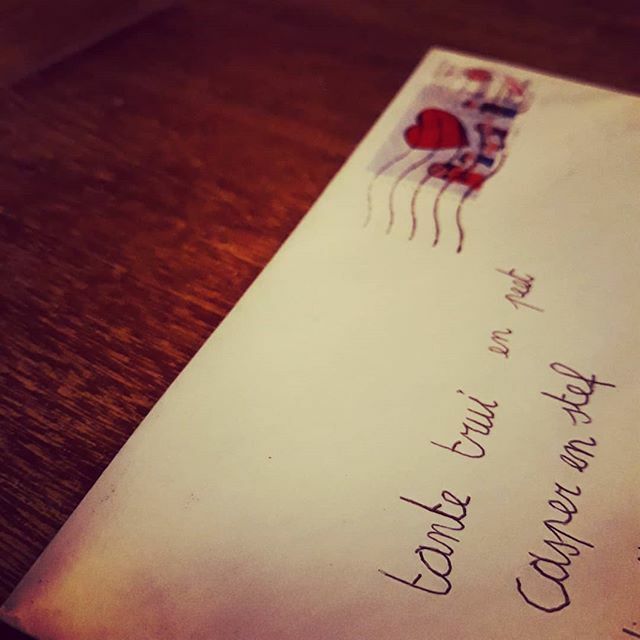 tante trui en peet
Casper en stef